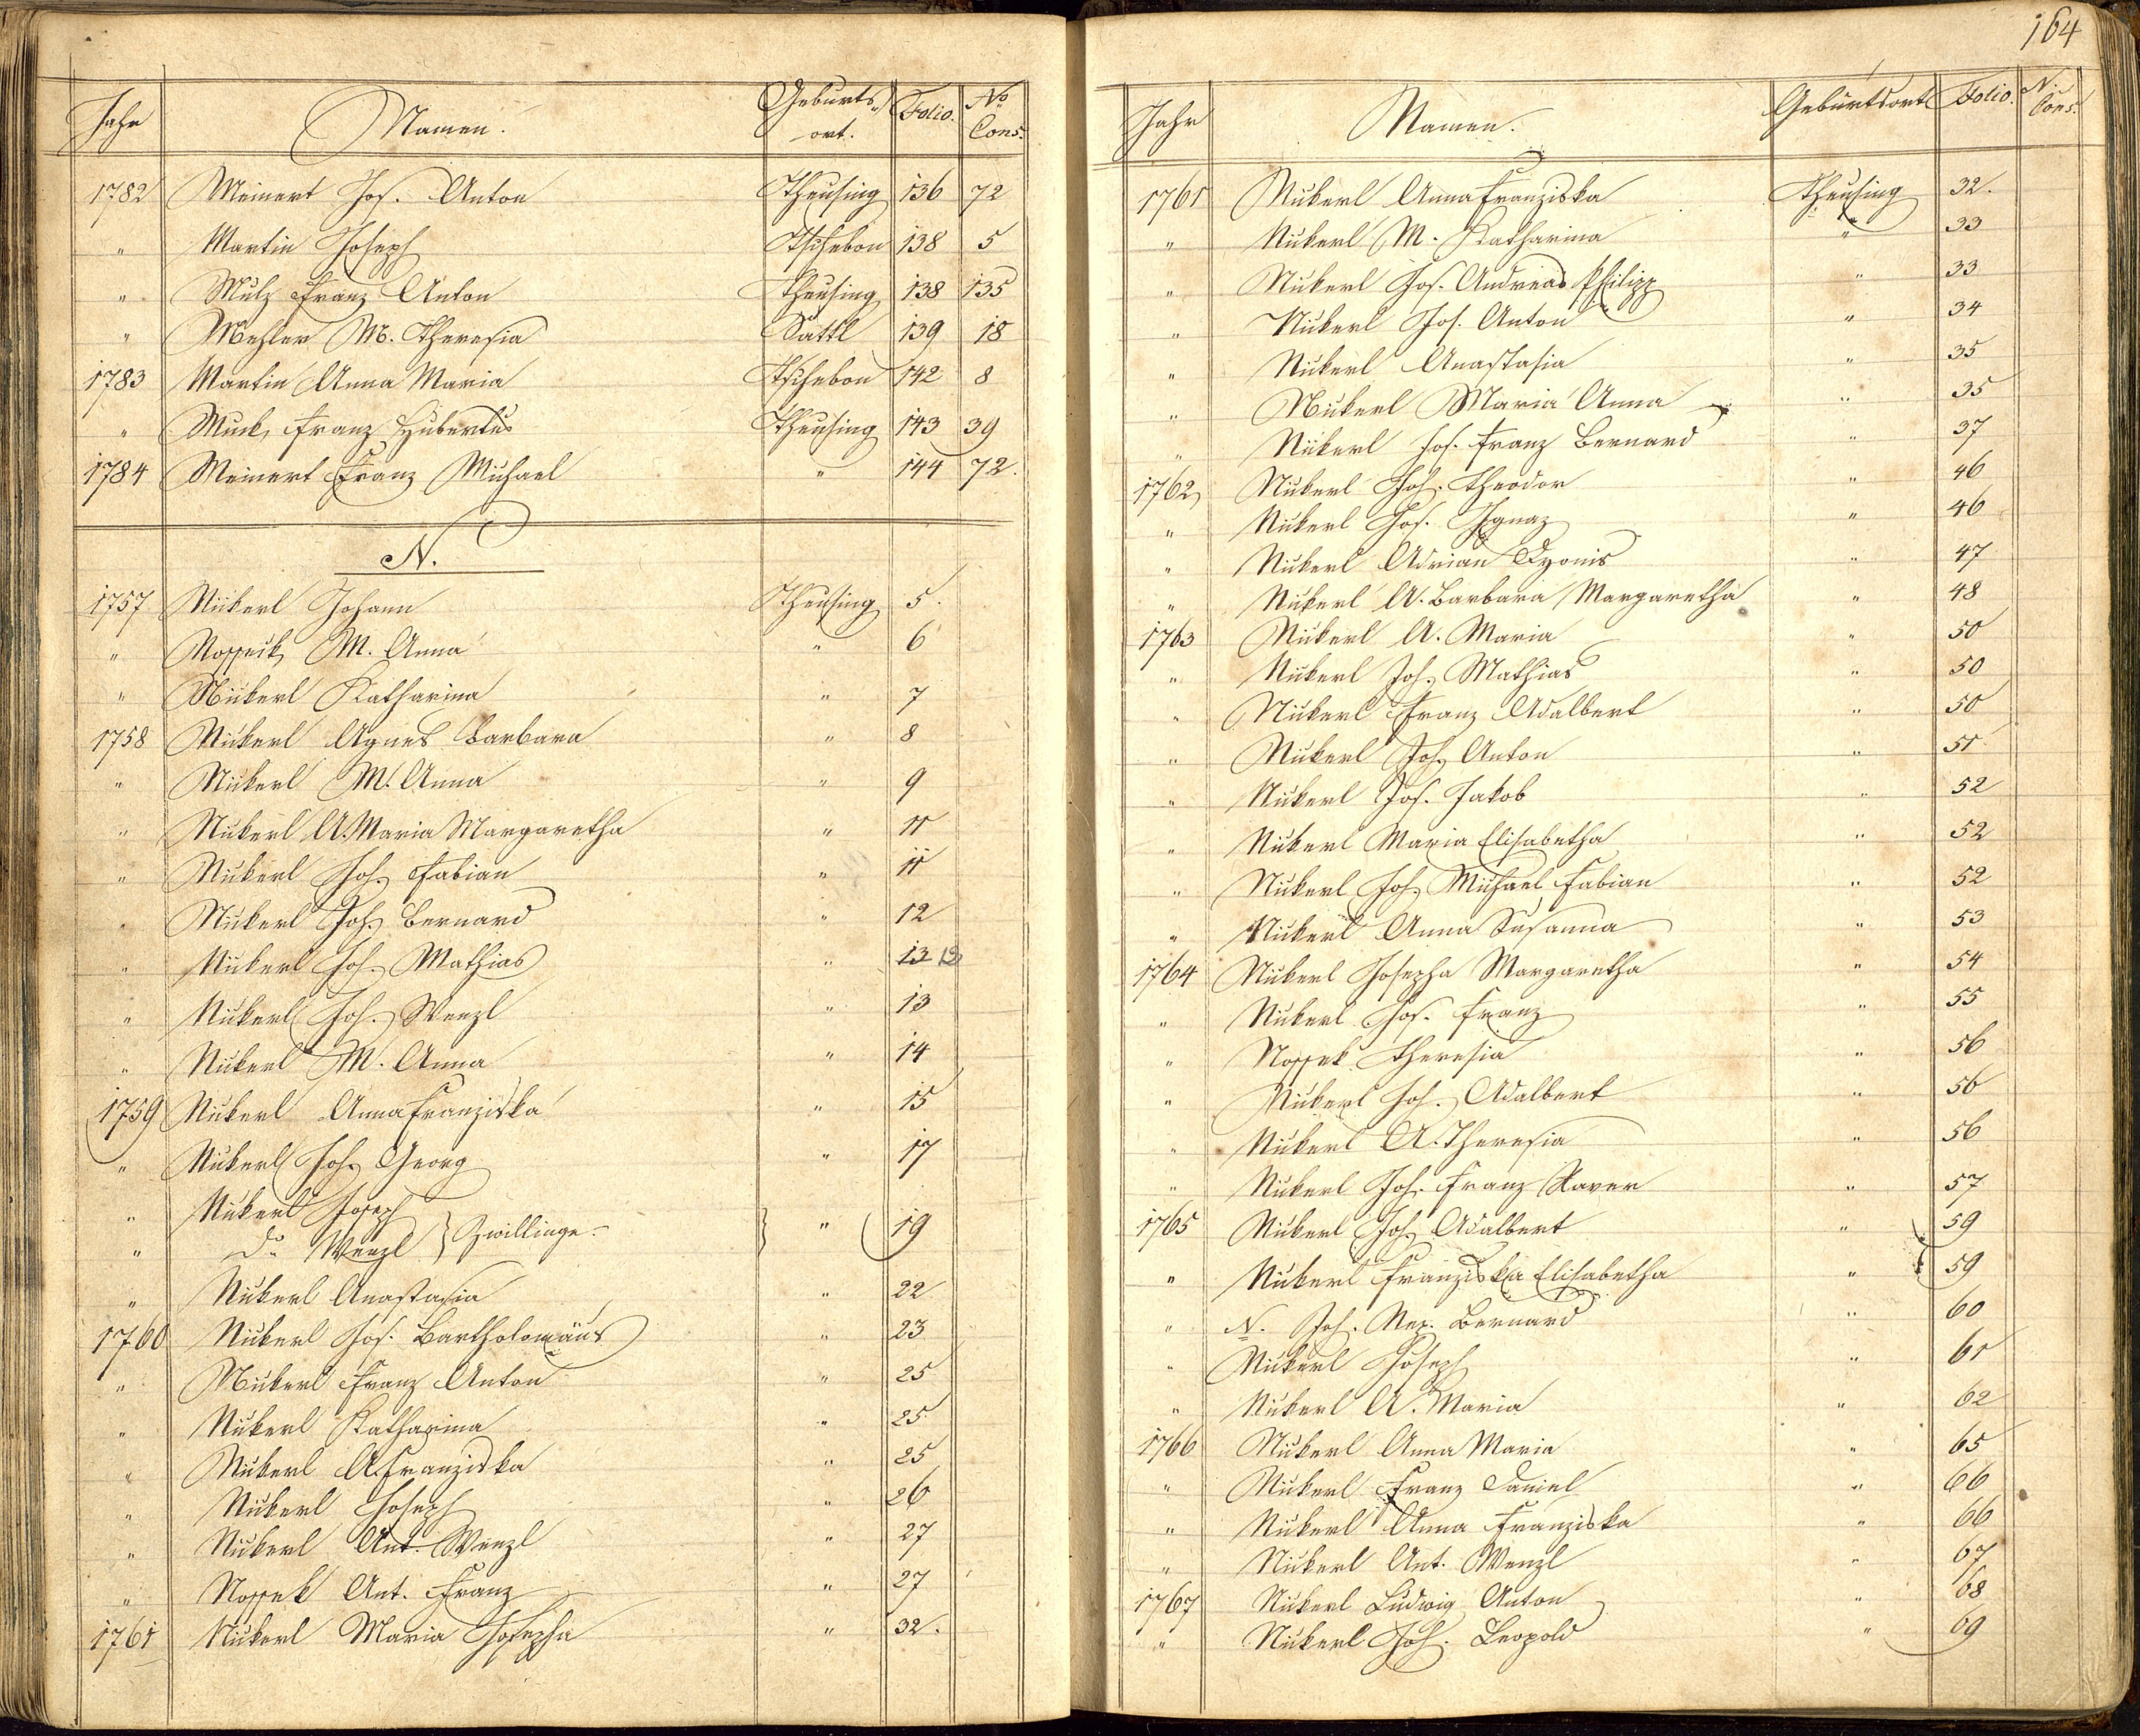 Jahr Namen. Geburts- ort. Folio. No Cons.
1782 Meinert Jos. Anton Theusing 136 72
" Martin Joseph Tschebon 138 5
" Mulz Franz Anton Theusing 138 135
" Mehler M. Theresia Sattl 139 18
1783 Martin Anna Maria Tschebon 142 8
" Muck Franz Hubertus Theusing 143 39
1784 Meinert Franz Michael " 144 72.
N.
1757 Nükerl Johann Theusing 5.
" M. Anna " 6
" Nükerl Katharina " 7
1758 Nükerl Agnes Barbara " 8
" Nükerl M. Anna " 9
" Nükerl A. Maria Margaretha " 11
" Nükerl Joh. Fabian " 11
" Nükerl Joh. Bernard " 12
" Nükerl Joh. Mathias " 13
" Nükerl Joh. Wenzl " 13
" Nükerl M. Anna " 14
1759 Nükerl Anna Franziska " 15
" Nükerl Joh. Georg " 17
" Nükerl Joseph
" Do Wenzl } Zwillinge. } " 19
" Nükerl Anastasia " 22
1760 Nükerl Jos. Bartholomäus " 23
" Nükerl Franz Anton " 25
" Nükerl Katharina " 25
" Nükerl A. Franziska " 25
" Nükerl Joseph " 26
" Nükerl Ant. Wenzl " 27
" Nossek Ant. Franz " 27
1761 Nükerl Maria Josepha " 32.
164
Jahr Namen. Geburtsort Folio. N. Cons.
1761 Nükerl Anna Franziska Theusing 32.
" Nükerl M. Katharina " 33
" Nükerl Jos. Andreas Philipp " 33
" Nükerl Jos. Anton " 34
" Nükerl Anastasia " 35
" Nükerl Maria Anna " 35
" Nükerl Jos. Franz Bernard " 37
1762 Nükerl Joh. Theodor " 46
" Nükerl Jos. Ignaz " 46
" Nükerl Adrian Dyonis " 47
" Nükerl A. Barbara Margaretha " 48
1763 Nükerl A. Maria " 50
" Nükerl Joh. Mathias " 50
" Nükerl Franz Adalbert " 50
" Nükerl Joh. Anton " 51
" Nükerl Jos. Jakob " 52
" Nükerl Maria Elisabetha " 52
" Nükerl Joh. Michael Fabian " 52
" Nükerl Anna Susanna " 53
1764 Nükerl Josepha Margaretha " 54
" Nükerl Jos. Franz " 55
" Nossek Theresia " 56
" Nükerl Joh. Adalbert " 56
" Nükerl A. Theresia " 56
" Nükerl Joh. Franz Xaver " 57
1765 Nükerl Joh. Adalbert " 59
" Nükerl Franziska Elisabetha " 59
" N. Joh. Nep. Bernard " 60
" Nükerl Joseph " 61
" Nükerl A. Maria " 62
1766 Nükerl Anna Maria " 65
" Nükerl Franz Daniel " 66
" Nükerl Anna Franziska " 66
" Nükerl Ant. Wenzl " 67
1767 Nükerl Ludwig Anton " 68
" Nükerl Joh. Leopold " 69